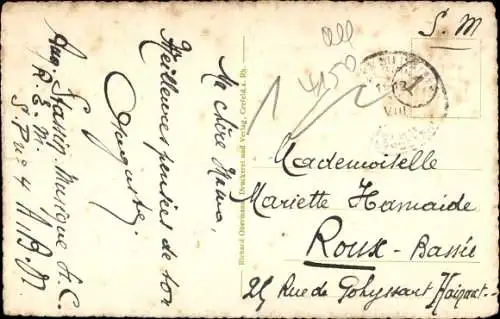 Ma chère Mama,
Meilleures pensées de ton
Auguste.
Aug Stassin Musique H.C.
R. E. M.
S. P n° 4 A. B. N
Richard Obermann, Druckerei und Verlag, Crefeld a. Rh.
S. M
all
450
VIII
Mademoiselle
Mariette Hamaide
Roux-Bassée
25 Rue de Gohyssart Hainaut